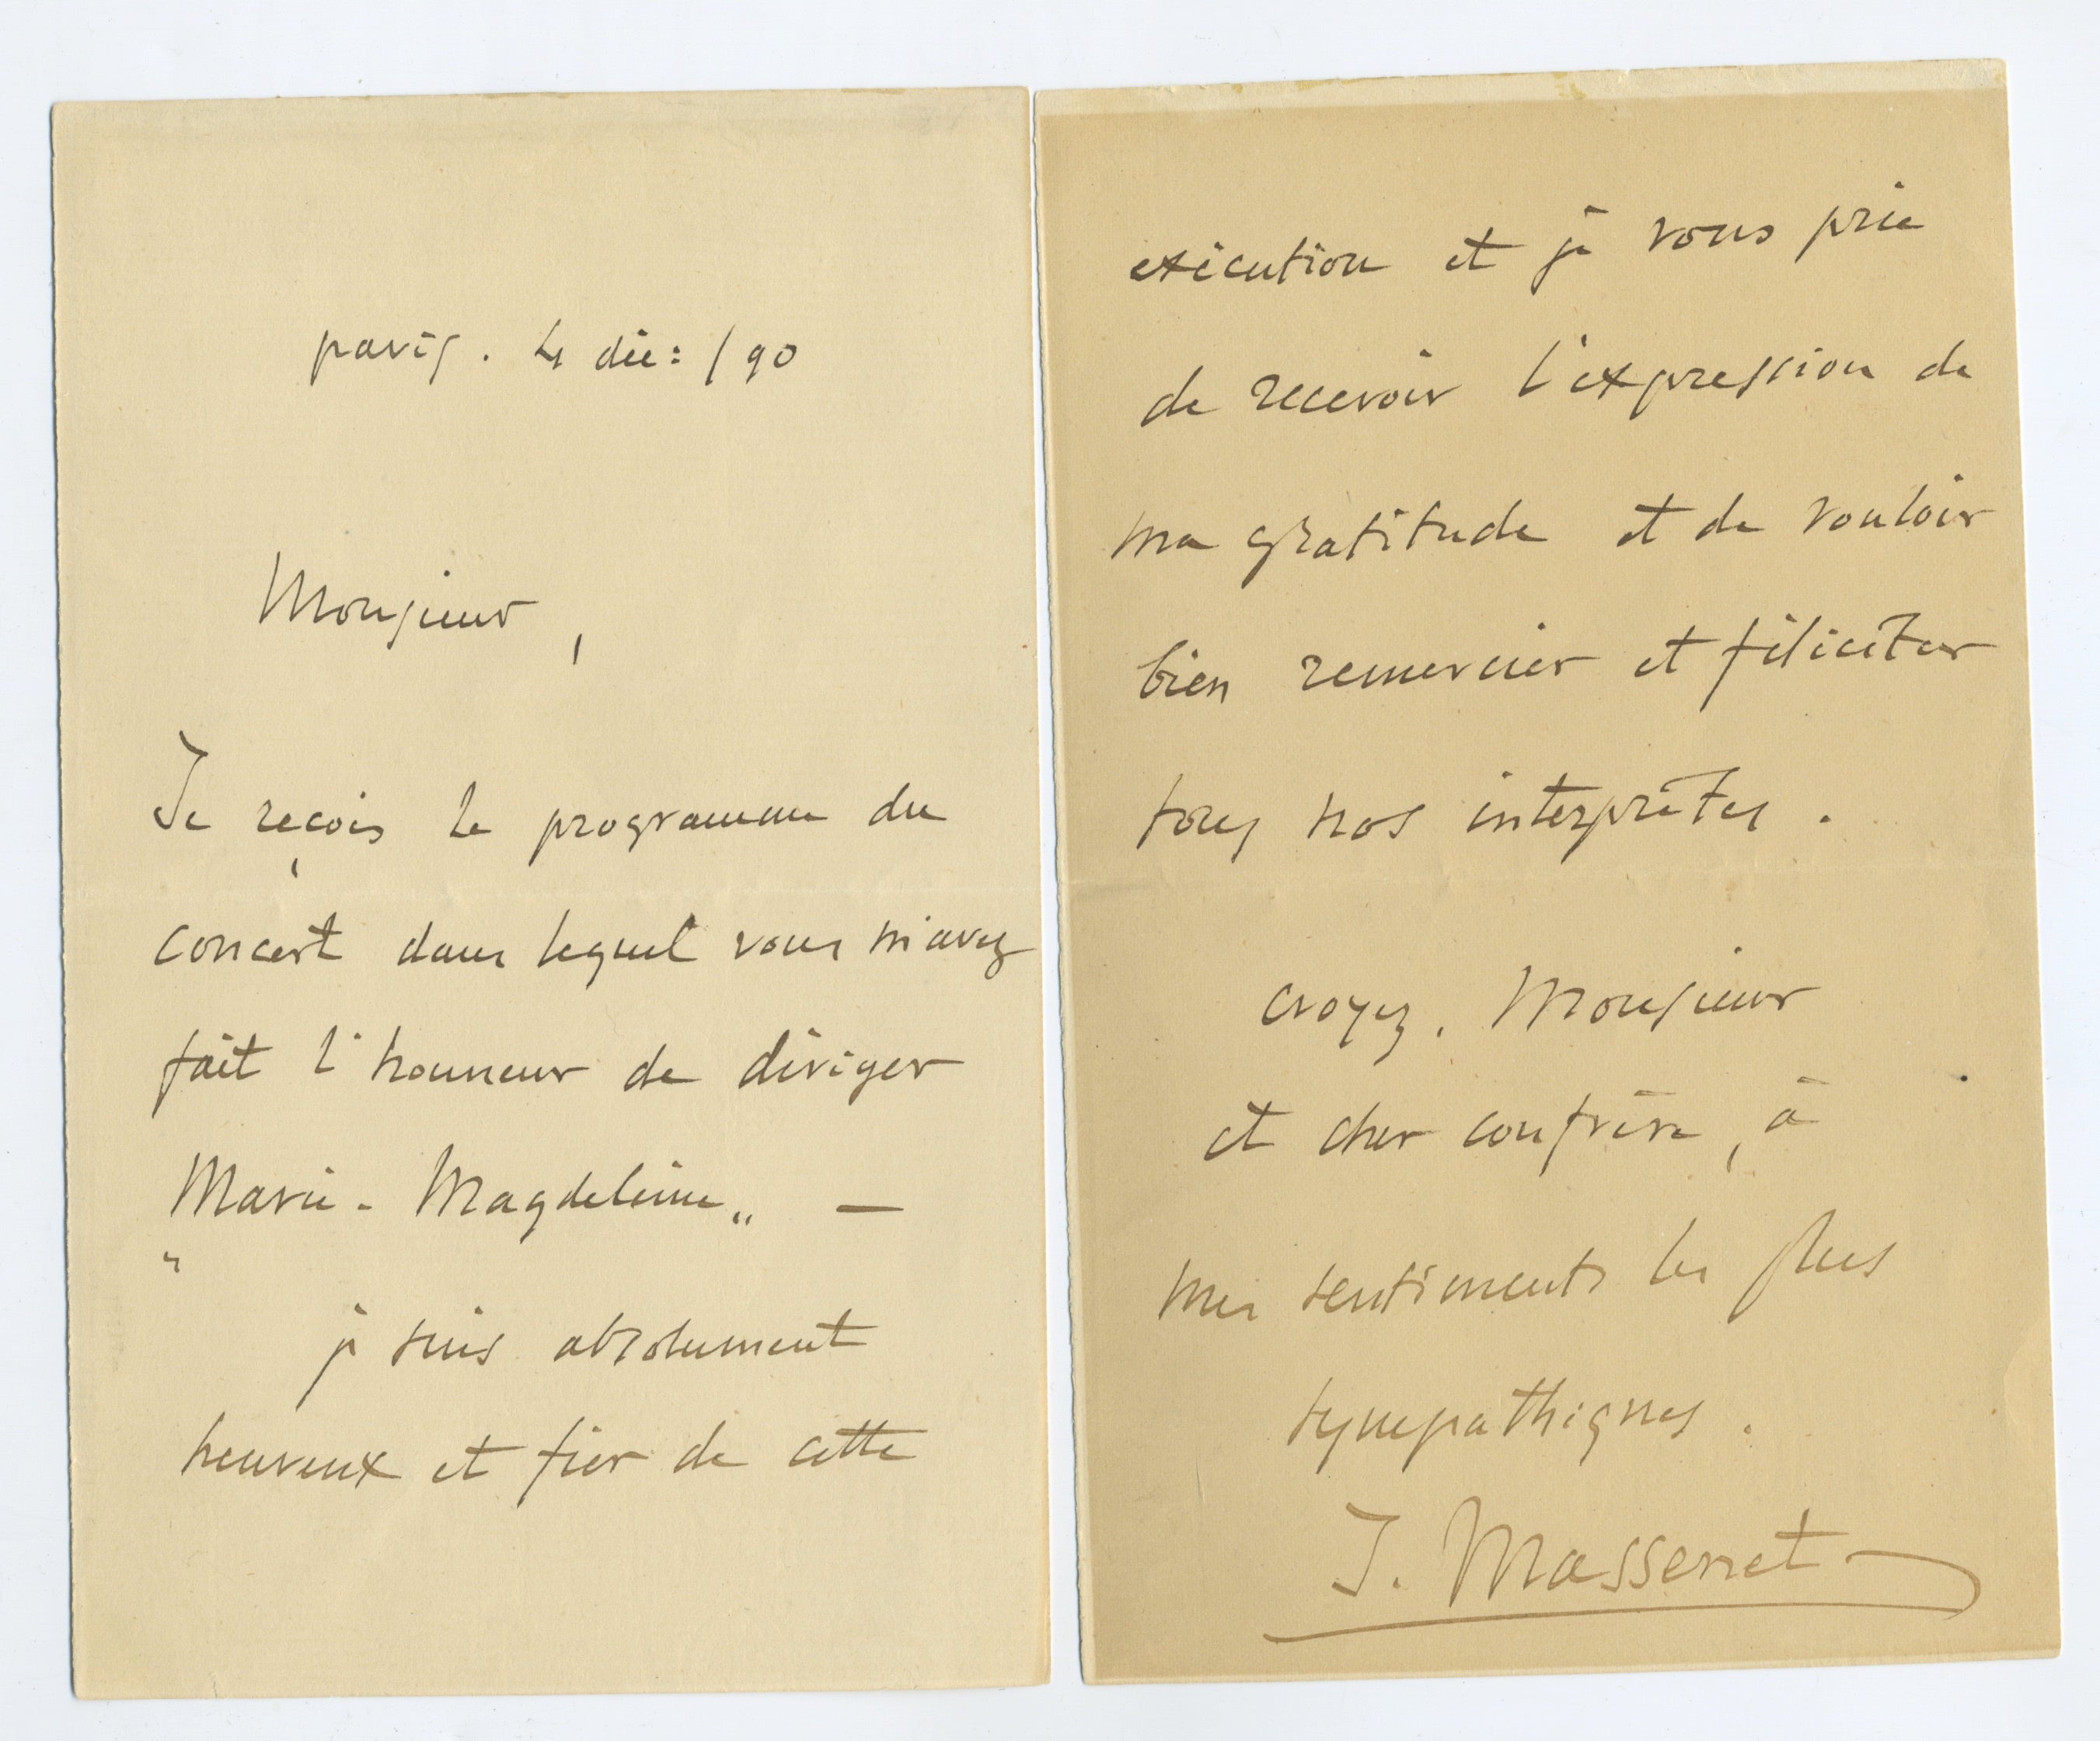 paris. 4 déc: /90
Monsieur,
Je reçois le programme du
concert dans lequel vous m'avez
fait l'honneur de diriger
"Marie-Magdeleine" —
je suis absolument
heureux et fier de cette
exécution et je vous prie
de recevoir l'expression de
ma gratitude et de vouloir
bien remercier et féliciter
tous nos interprètes.
croyez, Monsieur
et cher confrère, à
mes sentiments les plus
sympathiques.
J. Massenet